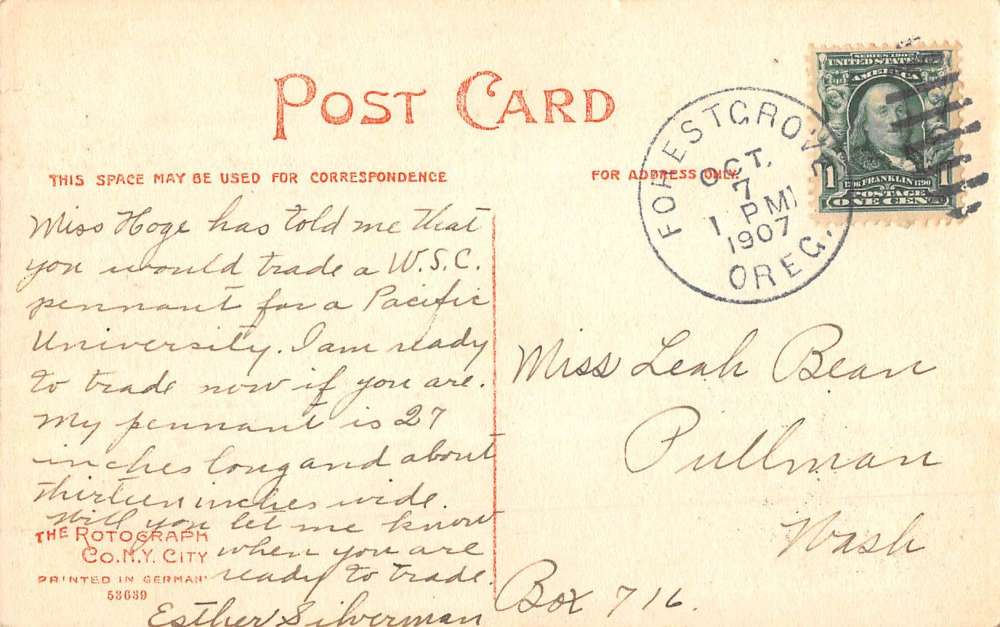 POST CARD
THIS SPACE MAY BE USED FOR CORRESPONDENCE
FOR ADDRESS ONLY.
FOREST GROVE
OCT.
7
1 PM
1907
OREG.
SERIES 1902
UNITED STATES OF
AMERICA
1
FRANKLIN 1790
POSTAGE
ONE CENT
Miss Hoge has told me that
you would trade a W.S.C.
pennant for a Pacific
University. I am ready
to trade now if you are.
My pennant is 27
inches long and about
thirteen inches wide.
Will you let me know
when you are
ready to trade.
Esther Silverman
THE ROTOGRAPH
CO. N.Y. CITY
PRINTED IN GERMANY
Miss Leah Bean
Pullman
Wash
Box 716.